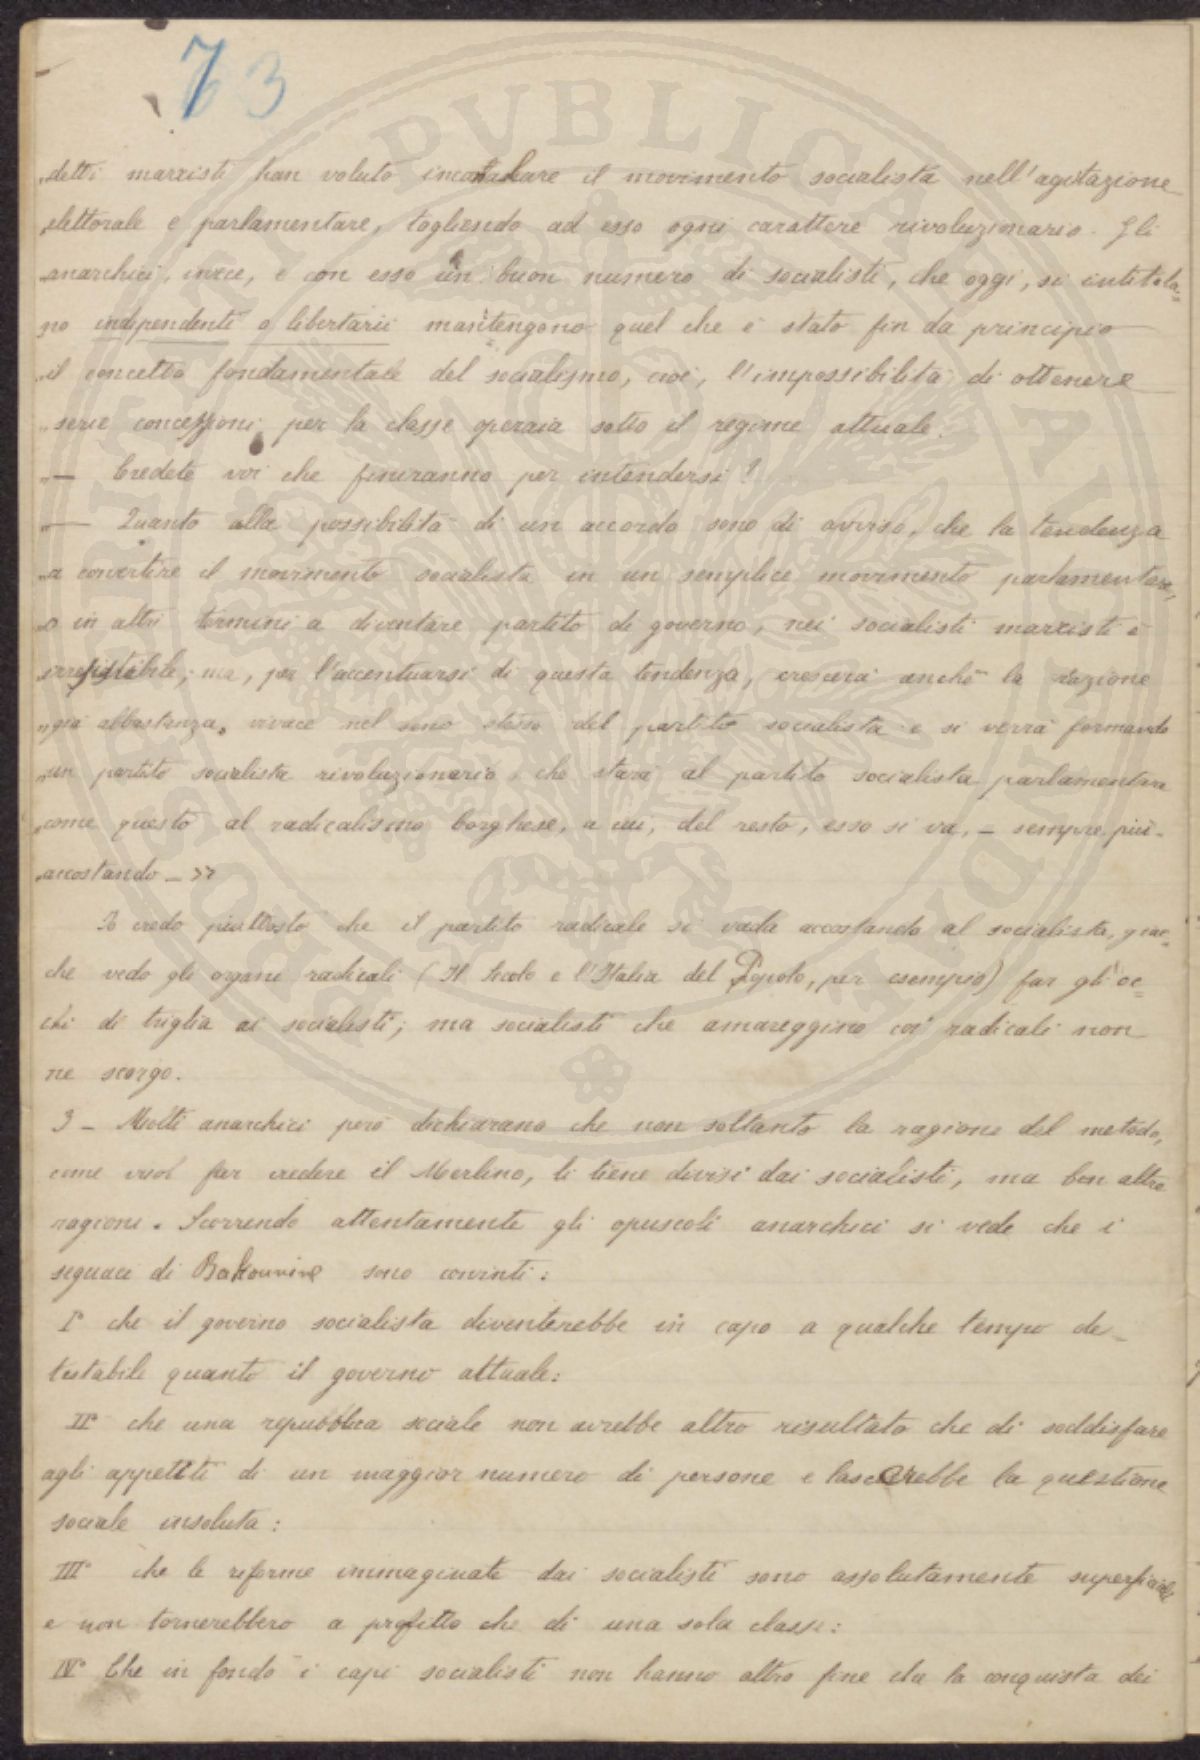 73
„detti marxisti han voluto incanalare il movimento socialista nell'agitazione
„elettorale e parlamentare, togliendo ad esso ogni carattere rivoluzionario. Gli
„anarchici, invece, e con esso un buon numero di socialisti, che oggi, si intitola=
„no indipendenti o libertarii mantengono quel che è stato fin da principio
„il concetto fondamentale del socialismo, cioè, l'impossibilità di ottenere
„serie concessioni per la classe operaia sotto il regime attuale.
„— Credete voi che finiranno per intendersi?
„— Quanto alla possibilità di un accordo sono di avviso, che la tendenza
„a convertire il movimento socialista in un semplice movimento parlamentare,
„o in altri termini a diventare partito di governo, nei socialisti marxisti è
„irresistibile; ma, per l'accentuarsi di questa tendenza, crescerà anche la reazione
„già abbastanza vivace nel seno stesso del partito socialista e si verrà formando
„un partito socialista rivoluzionario che starà al partito socialista parlamentare
„come questo al radicalismo borghese, a cui, del resto, esso si va, — sempre più
„accostando — »
Io credo piuttosto che il partito radicale si vada accostando al socialista, giac=
chè vedo gli organi radicali (Il Secolo e l'Italia del Popolo, per esempio) far gli oc=
chi di triglia ai socialisti; ma socialisti che amareggino coi radicali non
ne scorgo.
3 — Molti anarchici però dichiarano che non soltanto la ragione del metodo,
come vuol far credere il Merlino, li tiene divisi dai socialisti, ma ben altre
ragioni. Scorrendo attentamente gli opuscoli anarchici si vede che i
seguaci di Bakounine sono convinti:
I° che il governo socialista diventerebbe in capo a qualche tempo de-
testabile quanto il governo attuale:
II° che una repubblica sociale non avrebbe altro risultato che di soddisfare
agli appetiti di un maggior numero di persone e lascerebbe la questione
sociale insoluta:
III° che le riforme immaginate dai socialisti sono assolutamente superficiali
e non tornerebbero a profitto che di una sola classe:
IV° Che in fondo i capi socialisti non hanno altro fine che la conquista dei